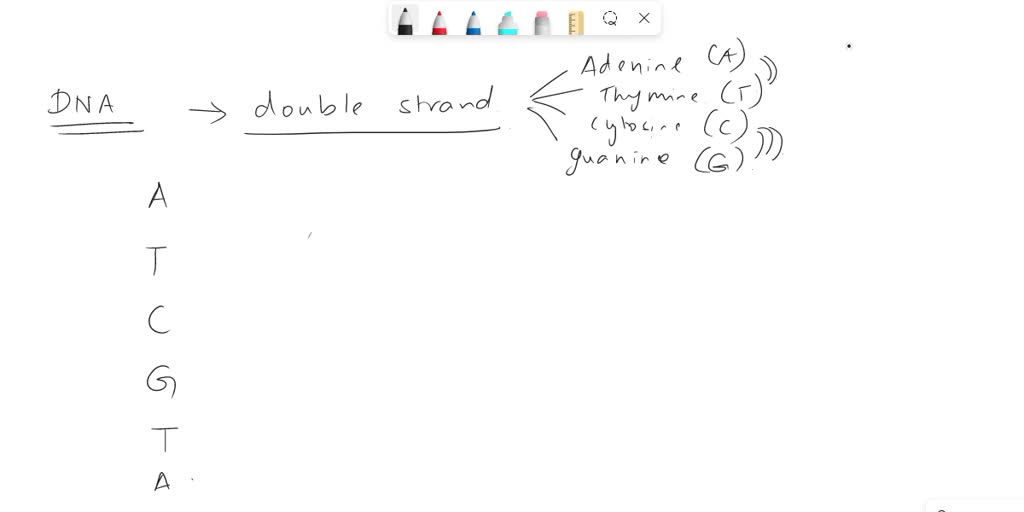 Adenine (A)
DNA → double strand Thymine (T)
Cytosine (C)
guanine (G)
A
T
C
G
T
A